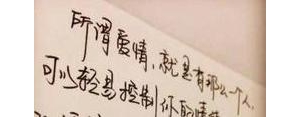 所谓爱情,就是有那么一个人,
可以轻易控制你的情绪